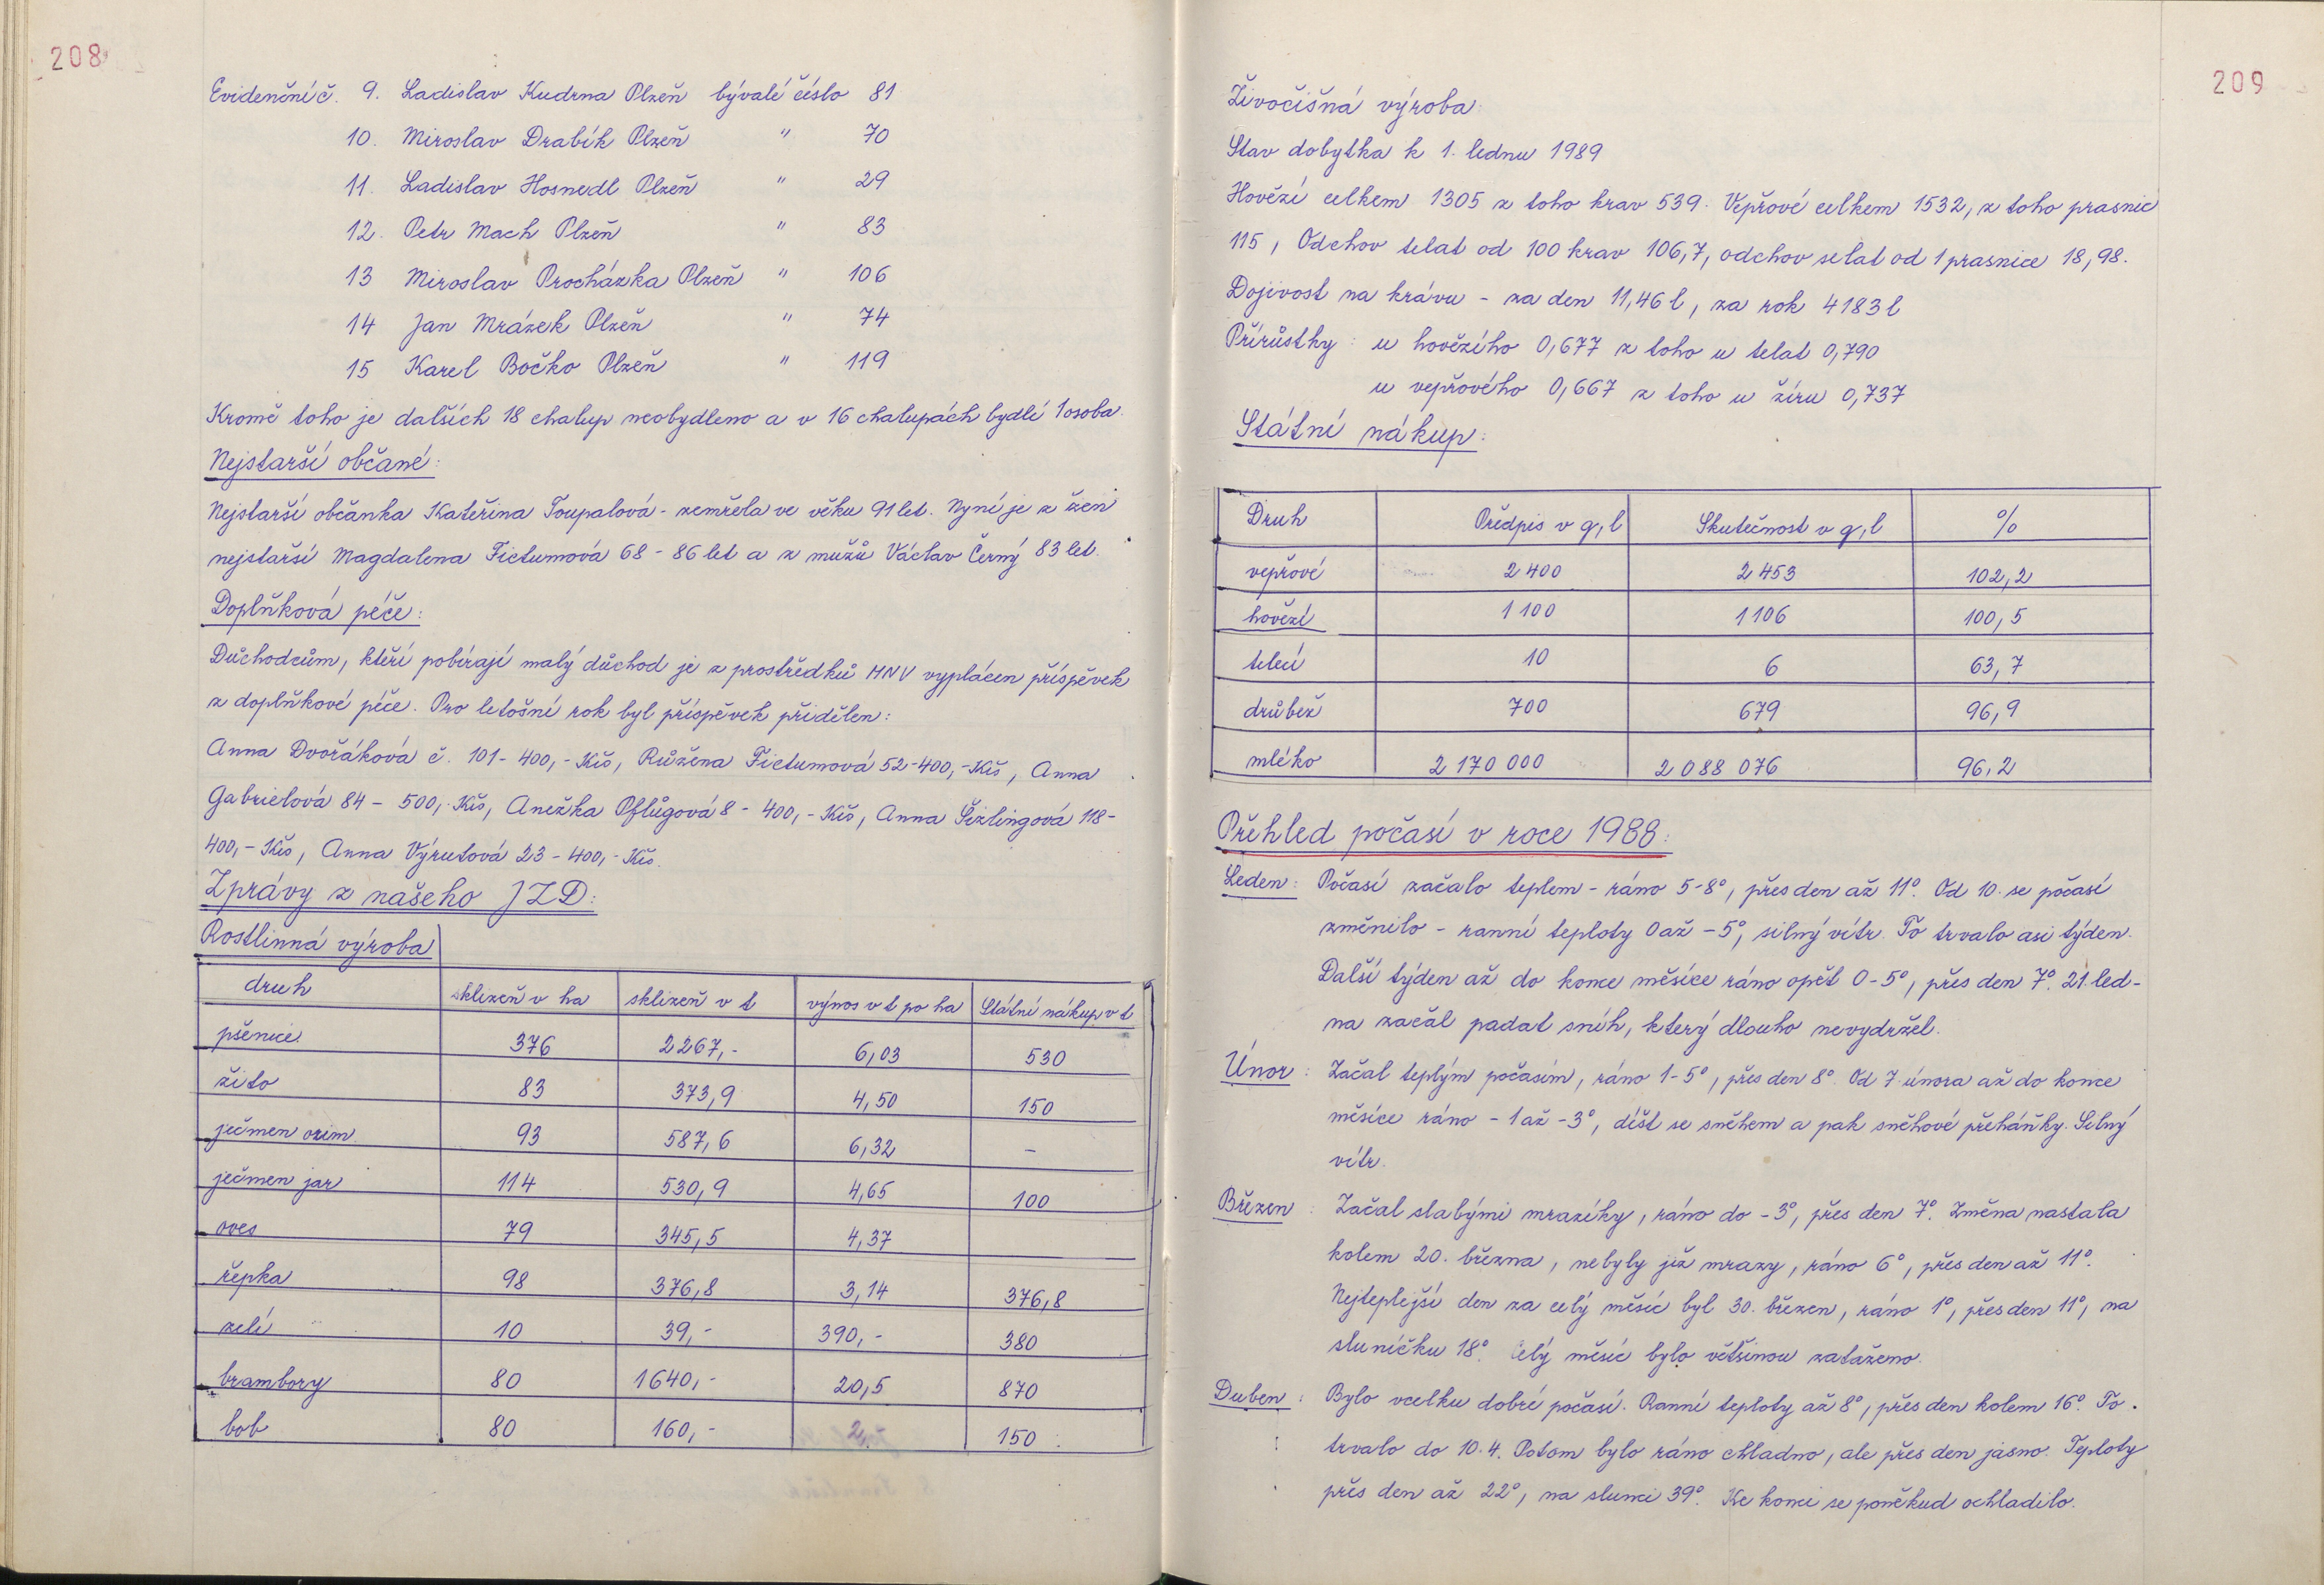 208
Evidenční č. 9. Ladislav Kudrna Plzeň bývalé číslo 81
10. Miroslav Drabík Plzeň " 70
11. Ladislav Hosnedl Plzeň " 29
12. Petr Mach Plzeň " 83
13 Miroslav Procházka Plzeň " 106
14 Jan Mrázek Plzeň " 74
15 Karel Bočko Plzeň " 119
Kromě toho je dalších 18 chalup neobydleno a v 16 chalupách bydlí 1 osoba.
Nejstarší občané:
Nejstarší občanka Kateřina Toupalová - zemřela ve věku 91 let. Nyní je z žen
nejstarší Magdalena Fictumová 68 - 86 let a z mužů Václav Černý 83 let.
Doplňková péče:
Důchodcům, kteří pobírají malý důchod je z prostředků MNV vyplácen příspěvek
z doplňkové péče. Pro letošní rok byl příspěvek přidělen:
Anna Dvořáková č. 101 - 400,- Kčs, Růžena Fictumová 52 - 400,- Kčs, Anna
Gabrielová 84 - 500,- Kčs, Anežka Pflůgová 8 - 400,- Kčs, Anna Šizlingová 118 -
400,- Kčs, Anna Výrutová 23 - 400,- Kčs.
Zprávy z našeho JZD:
Rostlinná výroba
druh sklizeň v ha sklizeň v t výnos v t po ha Státní nákup v t
pšenice 376 2267,- 6,03 530
žito 83 373,9 4,50 150
ječmen ozim. 93 587,6 6,32 -
ječmen jar 114 530,9 4,65 100
oves 79 345,5 4,37
řepka 98 376,8 3,14 376,8
zelí 10 39,- 390,- 380
brambory 80 1640,- 20,5 870
bob 80 160,- 2,- 150
209
Živočišná výroba:
Stav dobytka k 1. lednu 1989
Hovězí celkem 1305 z toho krav 539. Vepřové celkem 1532, z toho prasnic
115, Odchov telat od 100 krav 106,7, odchov selat od 1 prasnice 18,98.
Dojivost na krávu - za den 11,46 l, za rok 4183 l
Přírůstky: u hovězího 0,677 z toho u telat 0,790
u vepřového 0,667 z toho u žíru 0,737
Státní nákup:
Druh Předpis v q, l Skutečnost v q, l %
vepřové 2 400 2 453 102,2
hovězí 1 100 1 106 100,5
telecí 10 6 63,7
drůbež 700 679 96,9
mléko 2 170 000 2 088 076 96,2
Přehled počasí v roce 1988:
Leden: Počasí začalo teplem - ráno 5-8°, přes den až 11°. Od 10. se počasí
změnilo - ranní teploty 0 až -5°, silný vítr. To trvalo asi týden.
Další týden až do konce měsíce ráno opět 0-5°, přes den 7°. 21. led-
na začal padat sníh, který dlouho nevydržel.
Únor: Začal teplým počasím, ráno 1-5°, přes den 8°. Od 7. února až do konce
měsíce ráno -1 až -3°, déšť se sněhem a pak sněhové přeháňky. Silný
vítr.
Březen: Začal slabými mrazíky, ráno do -3°, přes den 7°. Změna nastala
kolem 20. března, nebyly již mrazy, ráno 6°, přes den až 11°.
Nejteplejší den za celý měsíc byl 30. březen, ráno 1°, přes den 11°, na
sluníčku 18°. Celý měsíc bylo většinou zataženo.
Duben: Bylo vcelku dobré počasí. Ranní teploty až 8°, přes den kolem 16°. To
trvalo do 10. 4. Potom bylo ráno chladno, ale přes den jasno. Teploty
přes den až 22°, na slunci 39°. Ke konci se poněkud ochladilo.